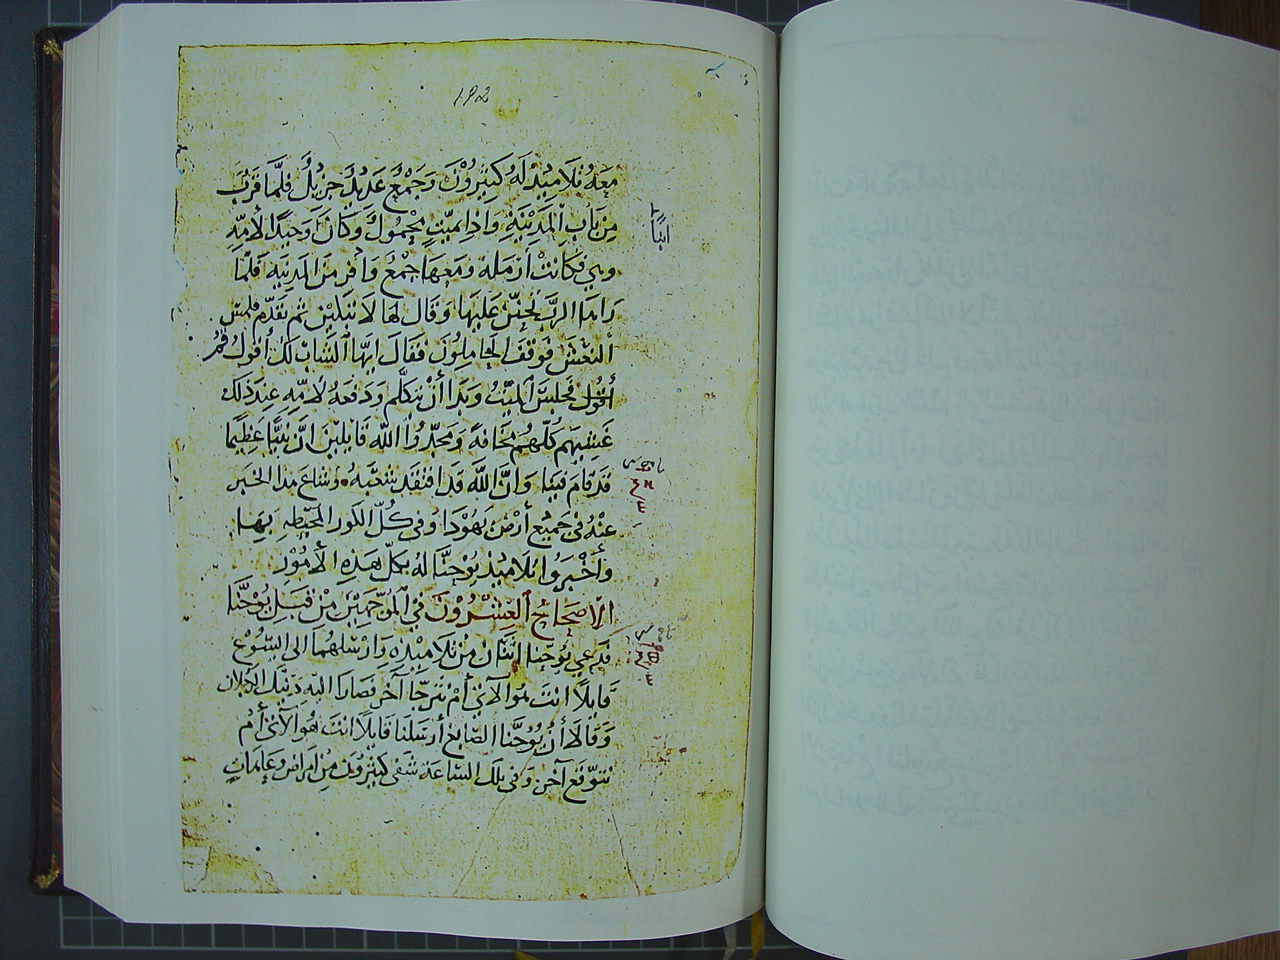 182
مَعَهُ تَلَامِيذٌ لَهُ كَثِيرُوْنَ وَجَمْعٌ عَدِيْدٌ جَزِيْلٌ فَلَمَّا قَرُبَ
مِن بَابِ الْمَدِيْنَةِ وَاِذَا بميّتٍ مَحْمُولٌ وَكَانَ وَحِيدًا لِأُمِّهِ
ابنًا
وهي فكَانتْ أرْمَلة وَمَعَهَا جَمْعٌ وَافِر مِنَ المَدِيْنَة فَلَمَّا
رَاهَا الرَّبُّ تَحنَّن عَلَيْهَا وَقَال لهَا لَا تبكين ثم تقَدَّم فلمس
النَعْشَ فَوَقَفَ الحَامِلُونَ فَقَالَ ايهَا الشَّابُ لكَ أقُولُ قُمْ
أقول فَجلسَ الْمَيّتُ وَبَدَا أنْ يَتكلَّم وَدَفعَهُ لأمِّهِ عِندَ ذَلكَ
غَشِيَهم كُلّهمْ مَخَافةٌ وَمَجدُوْا الله قَايلينَ انَّ نبيًّا عَظِيمًا
قَد قَامَ فينَا وَانَّ اللَّهَ قَد افتَقَد شعْبَهُ وَشَاعَ هذا الخبَر
عَنْهُ فى جَميْع أرْضِ يَهُوْدَا وَفى كُلّ الكوَر المحِيْطِة بِهَا
وأخْبَرُوا تلَاميذُ يُوْحَنَّا لهُ بكلّ هَذِهِ الأمُوْر
الإصحَاحُ العِشْرُوْنَ في المُوَجَّهيْنَ مِنْ قِبَلِ يُوْحَنَّا
فدَعى يُوْحَنا اثنَان مِنْ تلَامِيْذِهِ وَارْسَلهُمَا الى ايسُوْع
قَايلًا انتَ هُوَ الآتي أمْ نتَرجّا آخَر فصَارَا اليْهِ ذَيْنك الرّجُلان
وَقَالَا أنّ يُوْحَنَّا الصَّابغ أرْسَلنَا قَايلًا انتَ هُوَ الآتى أمْ
نتوَقّع آخَر وَفى تلكَ السَّاعَة شَفى كثيْرُوْنَ مِنْ امرَاض وعَاهاتٍ